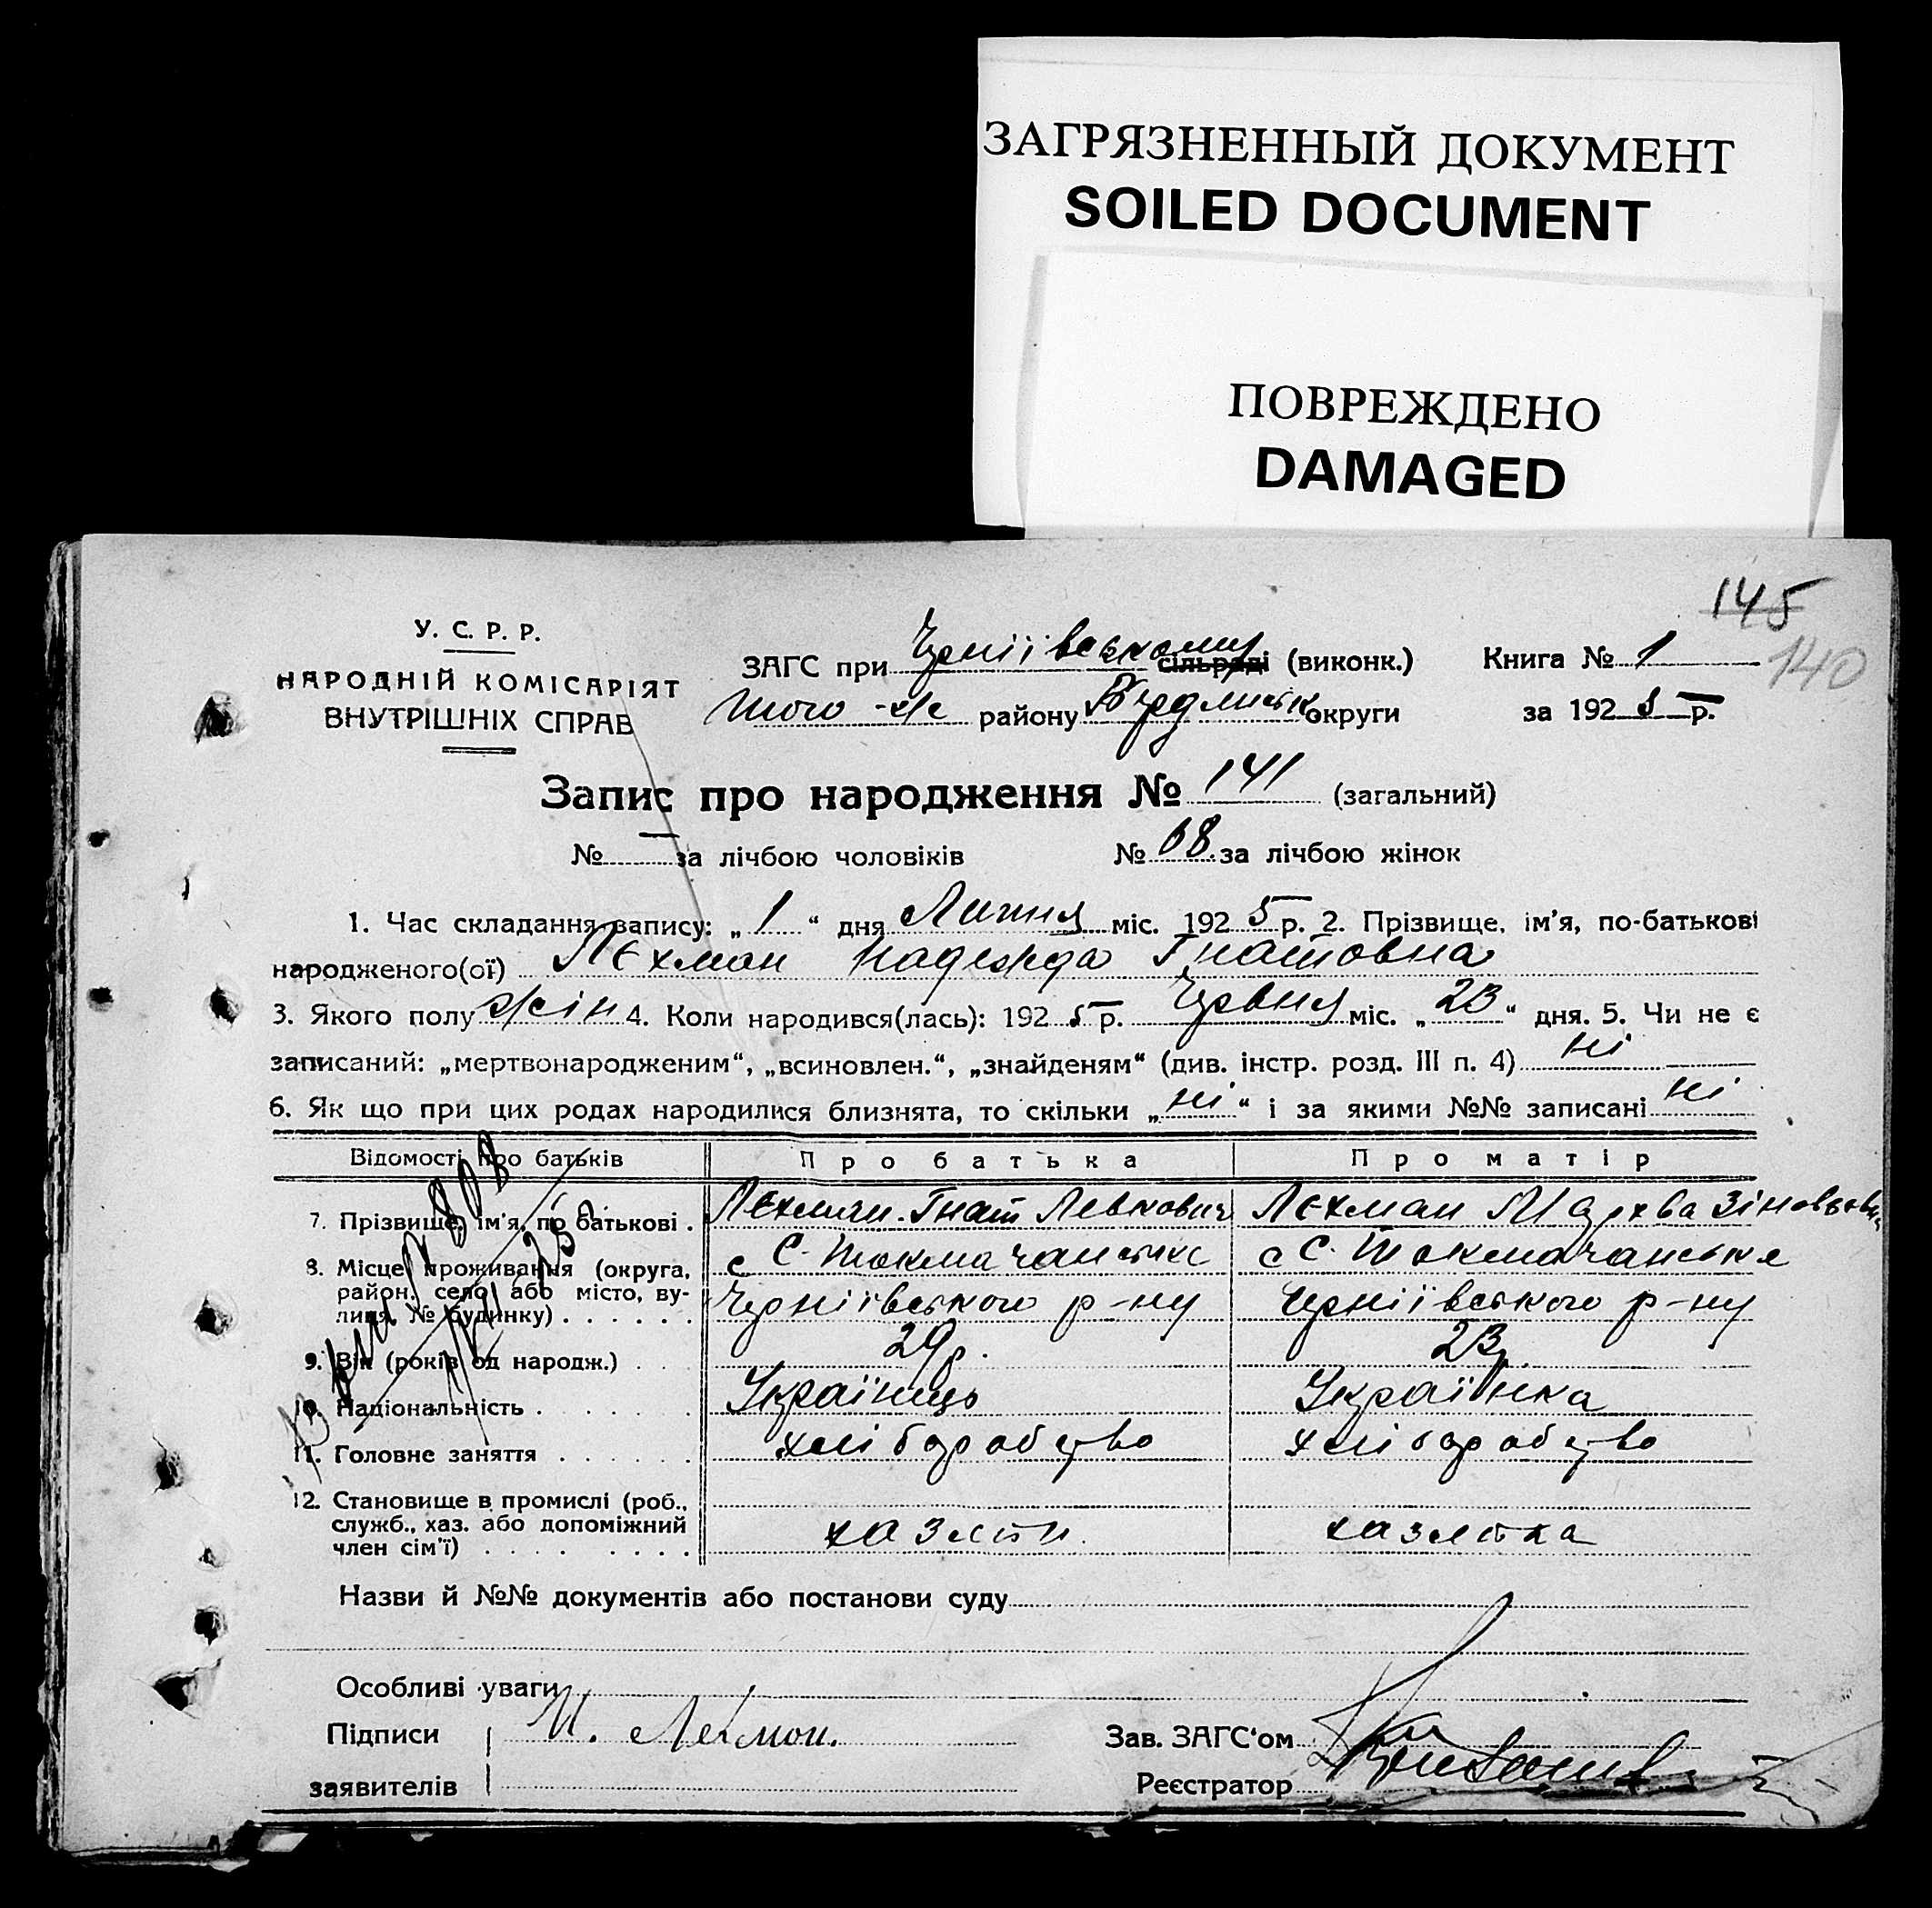 ЗАГРЯЗНЕННЫЙ ДОКУМЕНТ
SOILED DOCUMENT
ПОВРЕЖДЕНО
DAMAGED
145
140
У. С. Р. Р.
НАРОДНІЙ КОМІСАРІЯТ
ВНУТРІШНІХ СПРАВ
ЗАГС при Черніївському сільраді (виконк.) Книга № 1
того-же району Бердянськ округи за 1925 р.
Запис про народження № 141 (загальний)
№ — за лічбою чоловіків № 68. за лічбою жінок
1. Час складання запису: „1“ дня Липня міс. 1925 р. 2. Прізвище, ім’я, по-батькові
народженого(ої) Лєхман Надежда Гнатовна
3. Якого полу жін 4. Коли народився(лась): 1925 р. Червня міс. „23“ дня. 5. Чи не є
записаний: „мертвонародженим“, „всиновлен.“, „знайденям“ (див. інстр. розд. III п. 4) ні
6. Як що при цих родах народилися близнята, то скільки „ні“ і за якими №№ записані ні
Відомості про батьків Про батька Про матір
7. Прізвище, ім’я, по батькові . Лєхман Гнат Левкович Лєхман Мархва Зіновьевн
8. Місце проживання (округа, район, село або місто, вулиця, № будинку) . . . . . .
с С. Токмачанське с С. Токмачанське
Черніївського р-ну Черніївського р-ну
9. Вік (років од народж.) . . . 29 р. 23 р.
10. Національність . . . . . . Українець Українка
11. Головне заняття . . . . . . хліборобство хліборобство
12. Становище в промислі (роб., служб., хаз. або допоміжний член сім’ї) . . . . . . . . хазяїн. хазяйка
Назви й №№ документів або постанови суду
Особливі уваги
Підписи И. Лехман. Зав. ЗАГС‘ом
заявителів Реєстратор